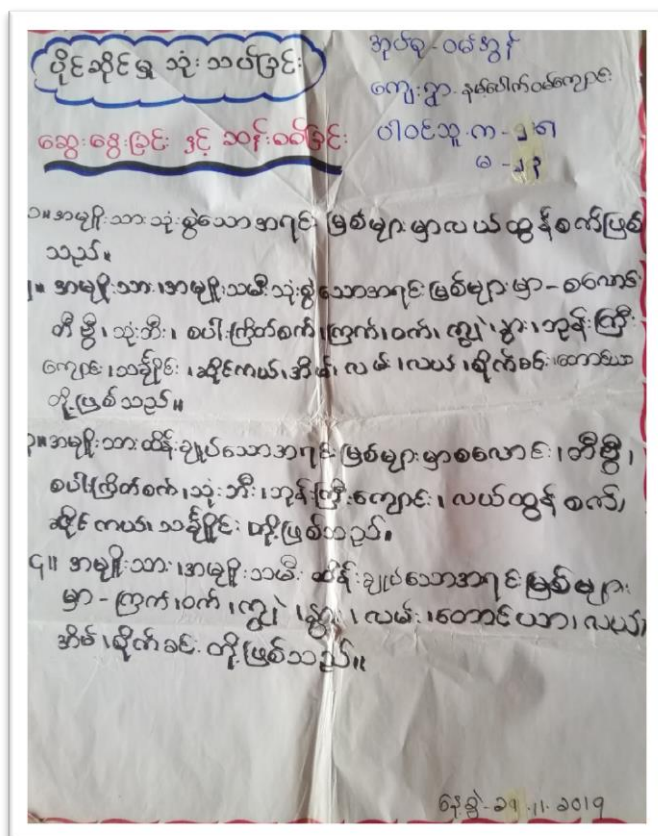 ပိုင်ဆိုင်မှု သုံးသပ်ခြင်း
ဆွေးနွေးခြင်း နှင့် ဆန်းစစ်ခြင်း
အုပ်စု - ဝမ်အွန်
ကျေးရွာ - နမ့်ပေါက်ဝမ်ကျောင်း
ပါဝင်သူ က -
မ - ၂၃
၁။ အမျိုးသားသုံးစွဲသောအရင်းမြစ်များမှာလယ်ထွန်စက်ဖြစ်
သည်။
၂။ အမျိုးသား၊ အမျိုးသမီးသုံးစွဲသောအရင်းမြစ်များမှာ - စလောင်း
တီဗွီ၊ သုံးဘီး၊ စပါးကြိတ်စက်၊ ကြက်၊ ဝက်၊ ကျွဲ၊ နွား၊ ဘုန်းကြီး
ကျောင်း၊ သင်္ချိုင်း၊ ဆိုင်ကယ်၊ အိမ်၊ လမ်း၊ လယ်၊ စိုက်ခင်း၊ တောင်ယာ
တို့ဖြစ်သည်။
၃။ အမျိုးသားထိန်းချုပ်သောအရင်းမြစ်များမှာစလောင်း၊ တီဗွီ၊
စပါးကြိတ်စက်၊ သုံးဘီး၊ ဘုန်းကြီးကျောင်း၊ လယ်ထွန်စက်၊
ဆိုင်ကယ်၊ သင်္ချိုင်း တို့ဖြစ်သည်။
၄။ အမျိုးသား၊ အမျိုးသမီး ထိန်းချုပ်သောအရင်းမြစ်များ
မှာ - ကြက်၊ ဝက်၊ ကျွဲ၊ နွား၊ လမ်း၊ တောင်ယာ၊ လယ်၊
အိမ်၊ စိုက်ခင်း တို့ဖြစ်သည်။
နေ့စွဲ - 29.11.2019